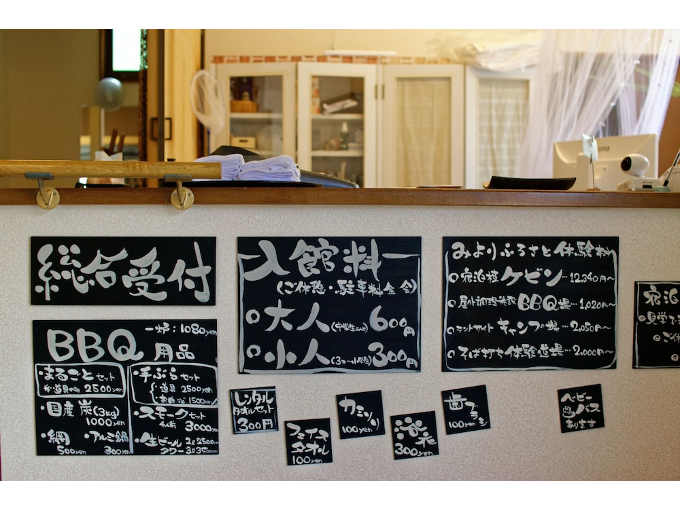 総合受付
入館料
(ご休憩・駐車料金含)
○大人(中学生以上)600円
○小人(3才~小学生)300円
みよりふるさと体験村
○宿泊棟ケビン…12,340円~
○BBQ場…1,020円~
キャンプ場…2,050円~
○そば打ち体験道場…2,000円~
宿泊
○見学
BBQ用品
一炉:1080yen
・まるごとセット
2500yen
・手ぶらセット
2500yen
1500yen
・国産炭(3kg)
1000yen
・スモークセット
4人前 3000yen
・網
500yen
・アルミ鍋
300yen
・生ビール
タワー
レンタル
タオルセット
300円
フェイス
タオル
100yen
カミソリ
100yen
浴衣
300yen
歯ブラシ
100yen
ベビー
バス
あります